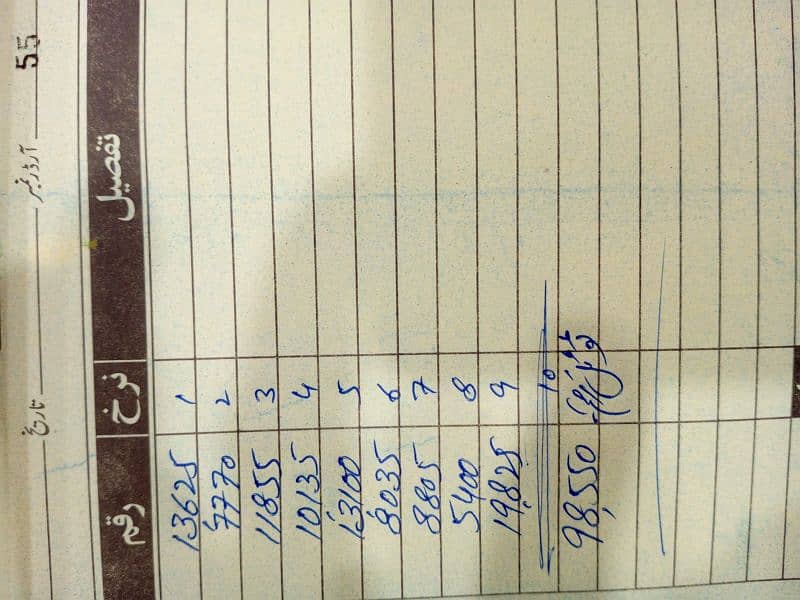 آرڈر نمبر 55 تاریخ
تفصیل نرخ رقم
13625 1
7770 2
11855 3
10135 4
13100 5
8035 6
8805 7
5400 8
19,825 9
10
98,550